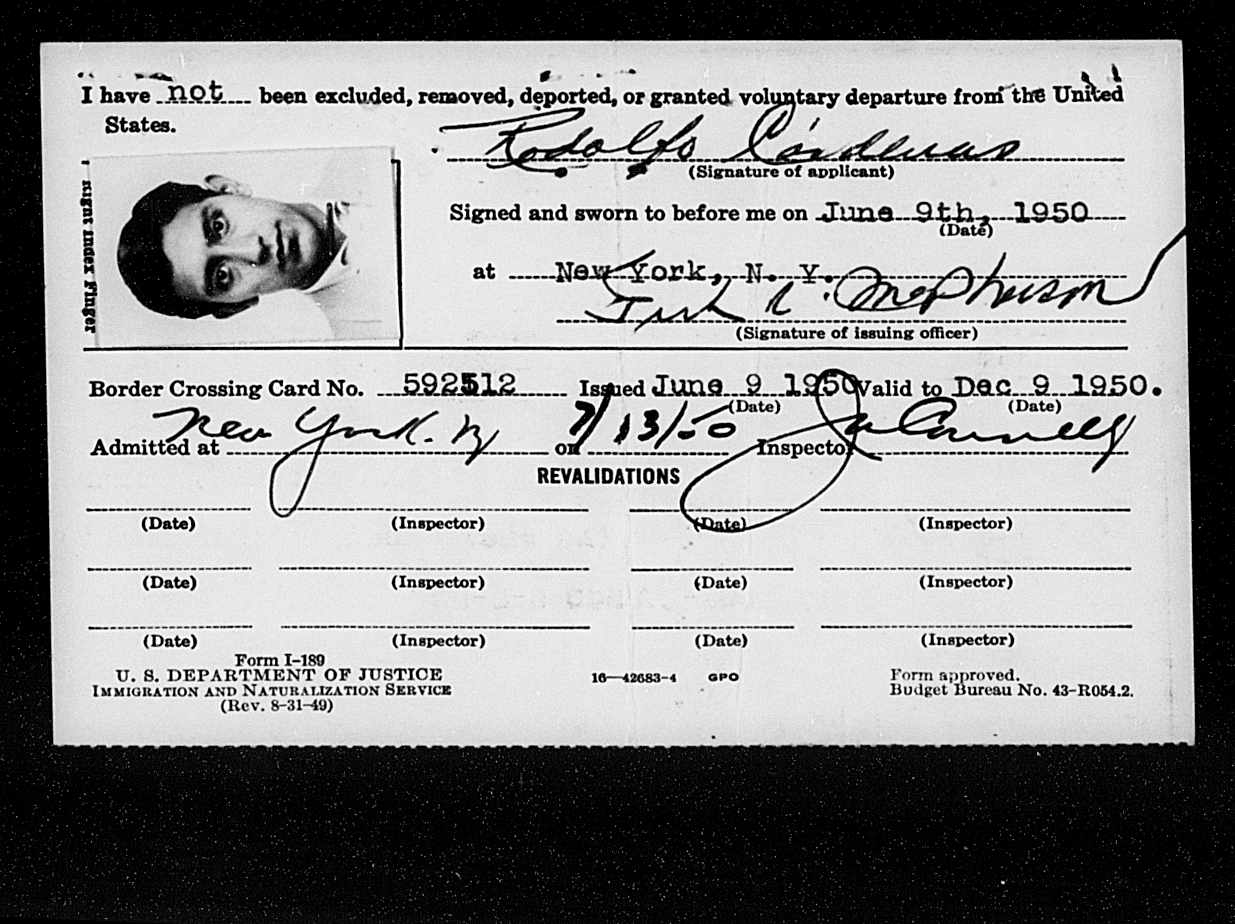 I have not been excluded, removed, deported, or granted voluntary departure from the United
States.
Rodolfo Cárdenas
(Signature of applicant)
Right Index Finger
Signed and sworn to before me on June 9th, 1950
(Date)
at New York, N. Y.
McPherson
(Signature of issuing officer)
Border Crossing Card No. 592512 Issued June 9 1950 Valid to Dec 9 1950.
(Date) (Date)
Admitted at New York. Ny on 7/13/50 Inspector
REVALIDATIONS
(Date) (Inspector) (Date) (Inspector)
(Date) (Inspector) (Date) (Inspector)
(Date) (Inspector) (Date) (Inspector)
Form I-189
U. S. DEPARTMENT OF JUSTICE
IMMIGRATION AND NATURALIZATION SERVICE
(Rev. 8-31-49)
16—42683-4 GPO
Form approved.
Budget Bureau No. 43-R054.2.